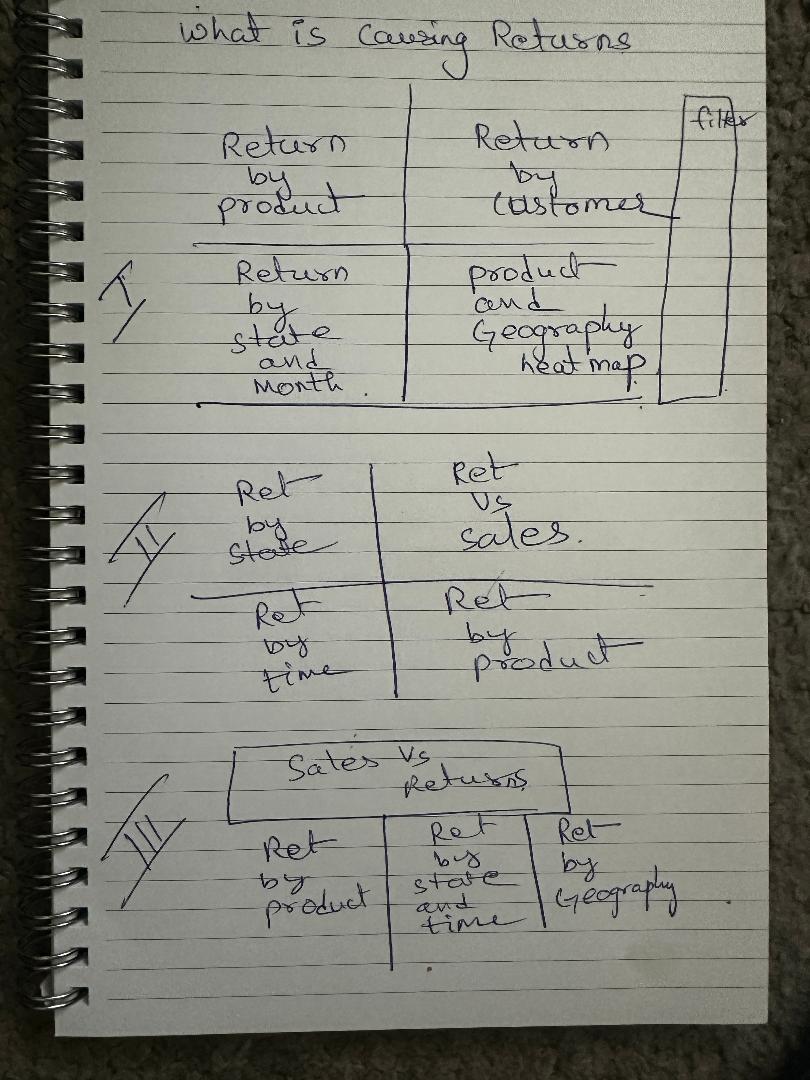 What is Causing Returns
filter
Return
by
product
Return
by
Customer
I
Return
by
state
and
Month.
product
and
Geography
heat map.
II
Ret
by
State
Ret
Vs
sales.
Ret
by
time
Ret
by
product
III
Sales Vs
Returns
Ret
by
product
Ret
by
state
and
time
Ret
by
Geography